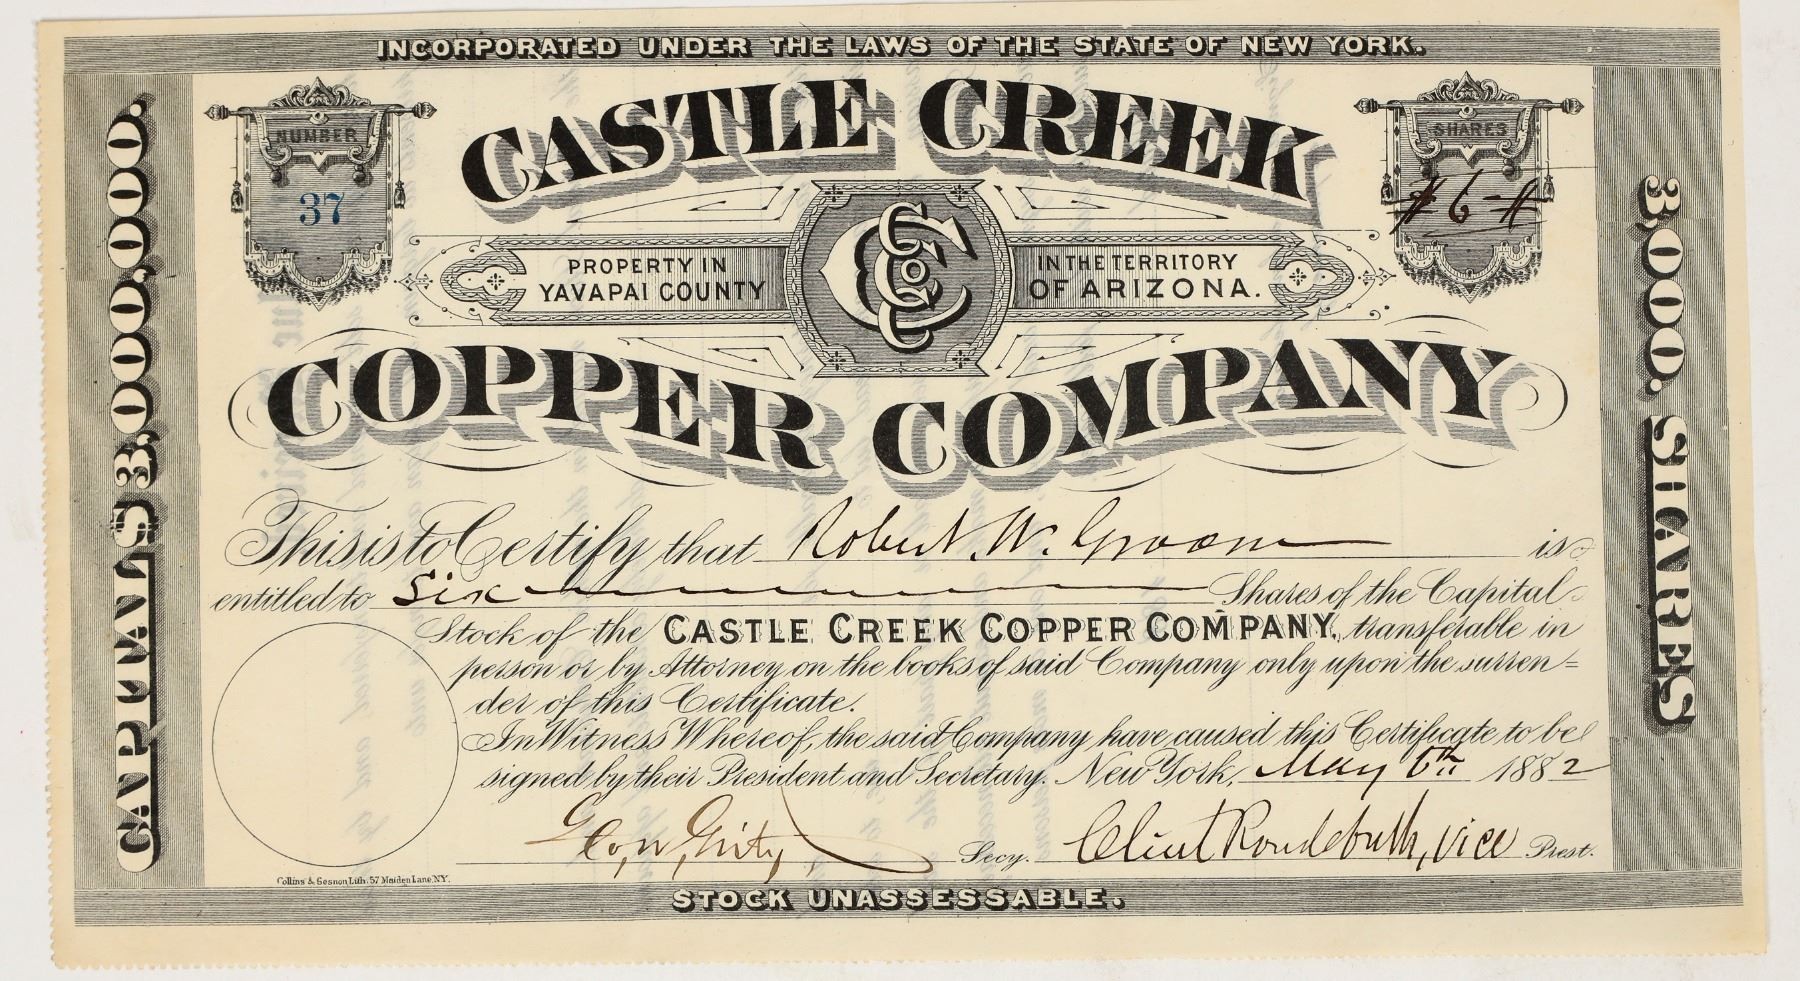 INCORPORATED UNDER THE LAWS OF THE STATE OF NEW YORK.
NUMBER
37
CASTLE CREEK
SHARES
# 6 - #
PROPERTY IN
YAVAPAI COUNTY
CCCo
IN THE TERRITORY
OF ARIZONA.
COPPER COMPANY
CAPITAL $3,000,000.
3,000. SHARES
This is to Certify that Robert W. Groom is
entitled to Six Shares of the Capital
Stock of the CASTLE CREEK COPPER COMPANY, transferable in
person or by Attorney on the books of said Company only upon the surren=
der of this Certificate.
In Witness Whereof, the said Company have caused this Certificate to be
signed by their President and Secretary. New York, May 6th 1882
Geo, W, Secy. Clint Roudebush, Vice Prest.
Collins & Sesnon Lith. 57 Maiden Lane, N.Y.
STOCK UNASSESSABLE.